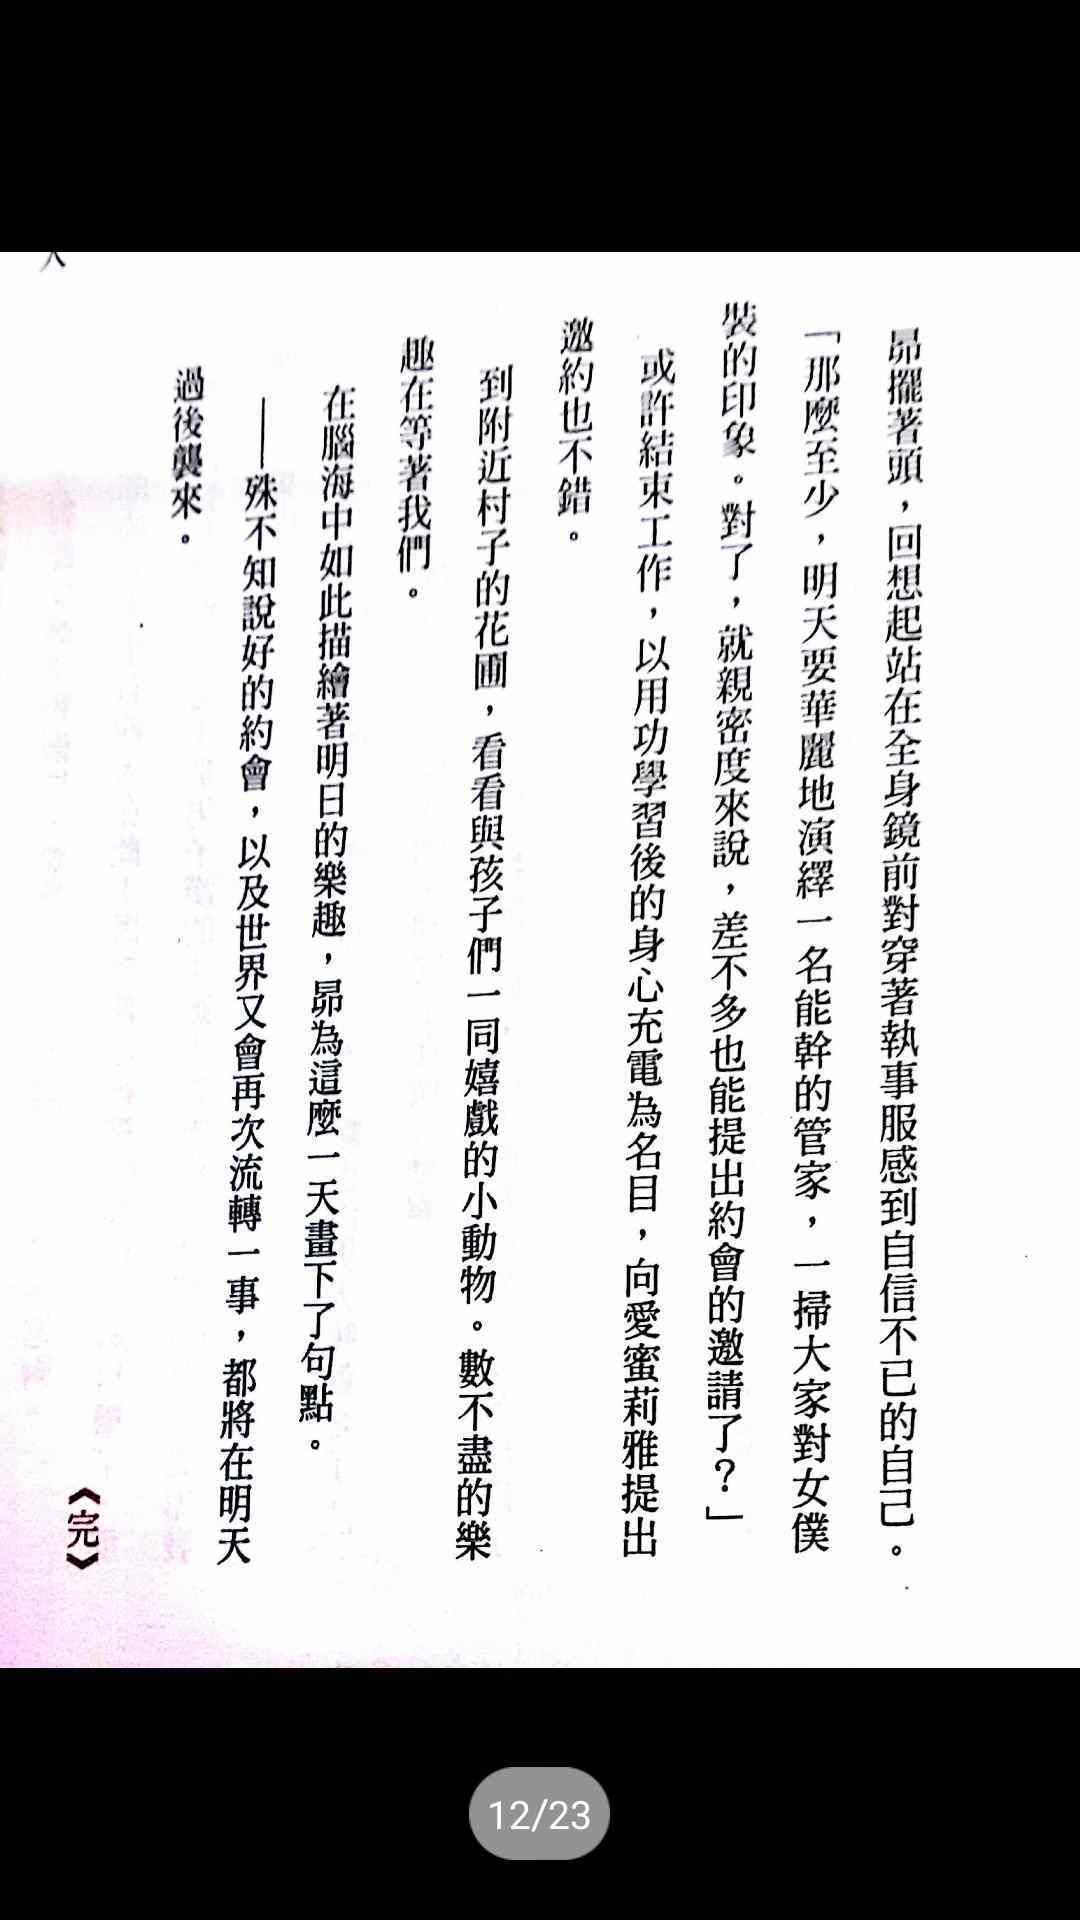 昴擺著頭，回想起站在全身鏡前對穿著執事服感到自信不已的自己。
「那麼至少，明天要華麗地演繹一名能幹的管家，一掃大家對女僕
裝的印象。對了，就親密度來說，差不多也能提出約會的邀請了？」
或許結束工作，以用功學習後的身心充電為名目，向愛蜜莉雅提出
邀約也不錯。
到附近村子的花圃，看看與孩子們一同嬉戲的小動物。數不盡的樂
趣在等著我們。
在腦海中如此描繪著明日的樂趣，昴為這麼一天畫下了句點。
——殊不知說好的約會，以及世界又會再次流轉一事，都將在明天
過後襲來。
《完》
12/23